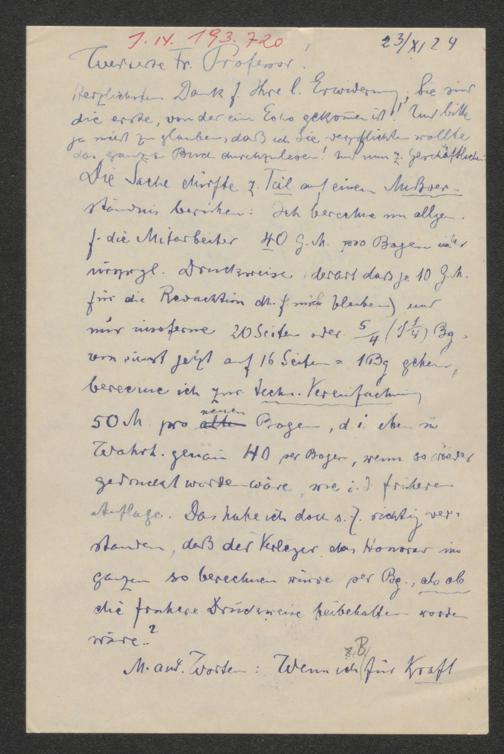 J.N. 193.720
23/XI 24
Verehrte Fr. Professor!
Herzlichsten Dank f Ihre l. Erwiderung, Sie sind
die erste, von der ein Echo gekommen ist! Und bitte
ja nicht zu glauben, daß ich Sie verpflichten wollte
das ganze Buch durchzulesen! Und nun z. Geschäftlichen
Die Sache dürfte z. Teil auf einem Mißver-
ständnis beruhen: Ich berechne im allgem.
f. die Mitarbeiter 40 G.M. pro Bogen
urspgl. Druckweise, derart daß je 10 G.M.
für die Redaktion dh. f mich bleiben) und
nur insoferne 20 Seiten oder 5/4 (1 1/4) Bg.
von einst jetzt auf 16 Seiten = 1 Bg gehen,
berechne ich zur techn. Vereinfachung
50 M. pro alten neuen Bogen, d. i. eben in
Wahrh. genau 40 per Bogen, wenn so wieder
gedruckt worden wäre, wie i. d früheren
Auflage. Das habe ich doch s. Z. richtig ver-
standen, daß der Verleger das Honorar im
ganzen so berechnen würde per Bg., als ob
die frühere Druckweise beibehalten worden
wäre.?
M. and. Worten: Wenn ich z. B. für Kraft